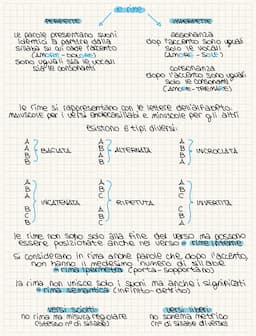 le rime
PERFETTE
IMPERFETTE
le parole presentano suoni
identici a partire dalla
sillaba su cui cade l'accento
(AMORE - DOLORE)
sono uguali sia le vocali
sia le consonanti
assonanza
dopo l'accento sono uguali
solo le vocali
(AMORE - SOLE)
consonanza
dopo l'accento sono uguali
solo le consonanti
(AMORE - TREMARE)
le rime si rappresentano con le lettere dell'alfabeto.
maiuscole per i versi endecasillabi e minuscole per gli altri
esistono 6 tipi diversi:
A
A
B
B
BACIATA
A
B
A
B
ALTERNATA
A
B
B
A
INCROCIATA
A
B
A
B
C
B
INCATENATA
A
B
C
A
B
C
RIPETUTA
A
B
C
C
B
A
INVERTITA
le rime non sono solo alla fine del verso ma possono
essere posizionate anche nel verso → rime interne
si considerano in rima anche parole che, dopo l'accento,
non hanno il medesimo numero di sillabe
→ rima ipermetra (porta - sopportano)
la rima non unisce solo i suoni ma anche i significati
→ rima semantica (infinito - detto)
versi sciolti
no rima ma misura regolare
(stesso n° di sillabe)
versi liberi
no schema metrico
(n° di sillabe diverse)